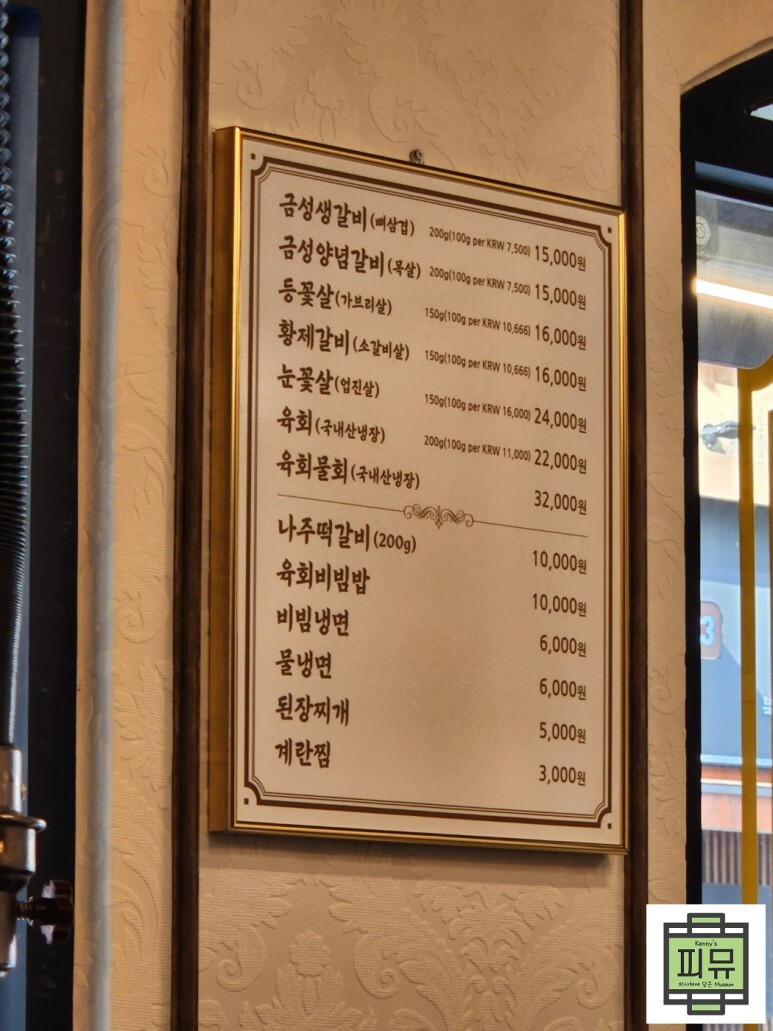 금성생갈비(뼈삼겹) 200g(100g per KRW 7,500) 15,000원
금성양념갈비(목살) 200g(100g per KRW 7,500) 15,000원
등꽃살(가브리살) 150g(100g per KRW 10,666) 16,000원
황제갈비(소갈비살) 150g(100g per KRW 10,666) 16,000원
눈꽃살(업진살) 150g(100g per KRW 16,000) 24,000원
육회(국내산냉장) 200g(100g per KRW 11,000) 22,000원
육회물회(국내산냉장) 32,000원
나주떡갈비(200g) 10,000원
육회비빔밥 10,000원
비빔냉면 6,000원
물냉면 6,000원
된장찌개 5,000원
계란찜 3,000원
3
Kenny's
피뮤
피사체에 담은 Museum